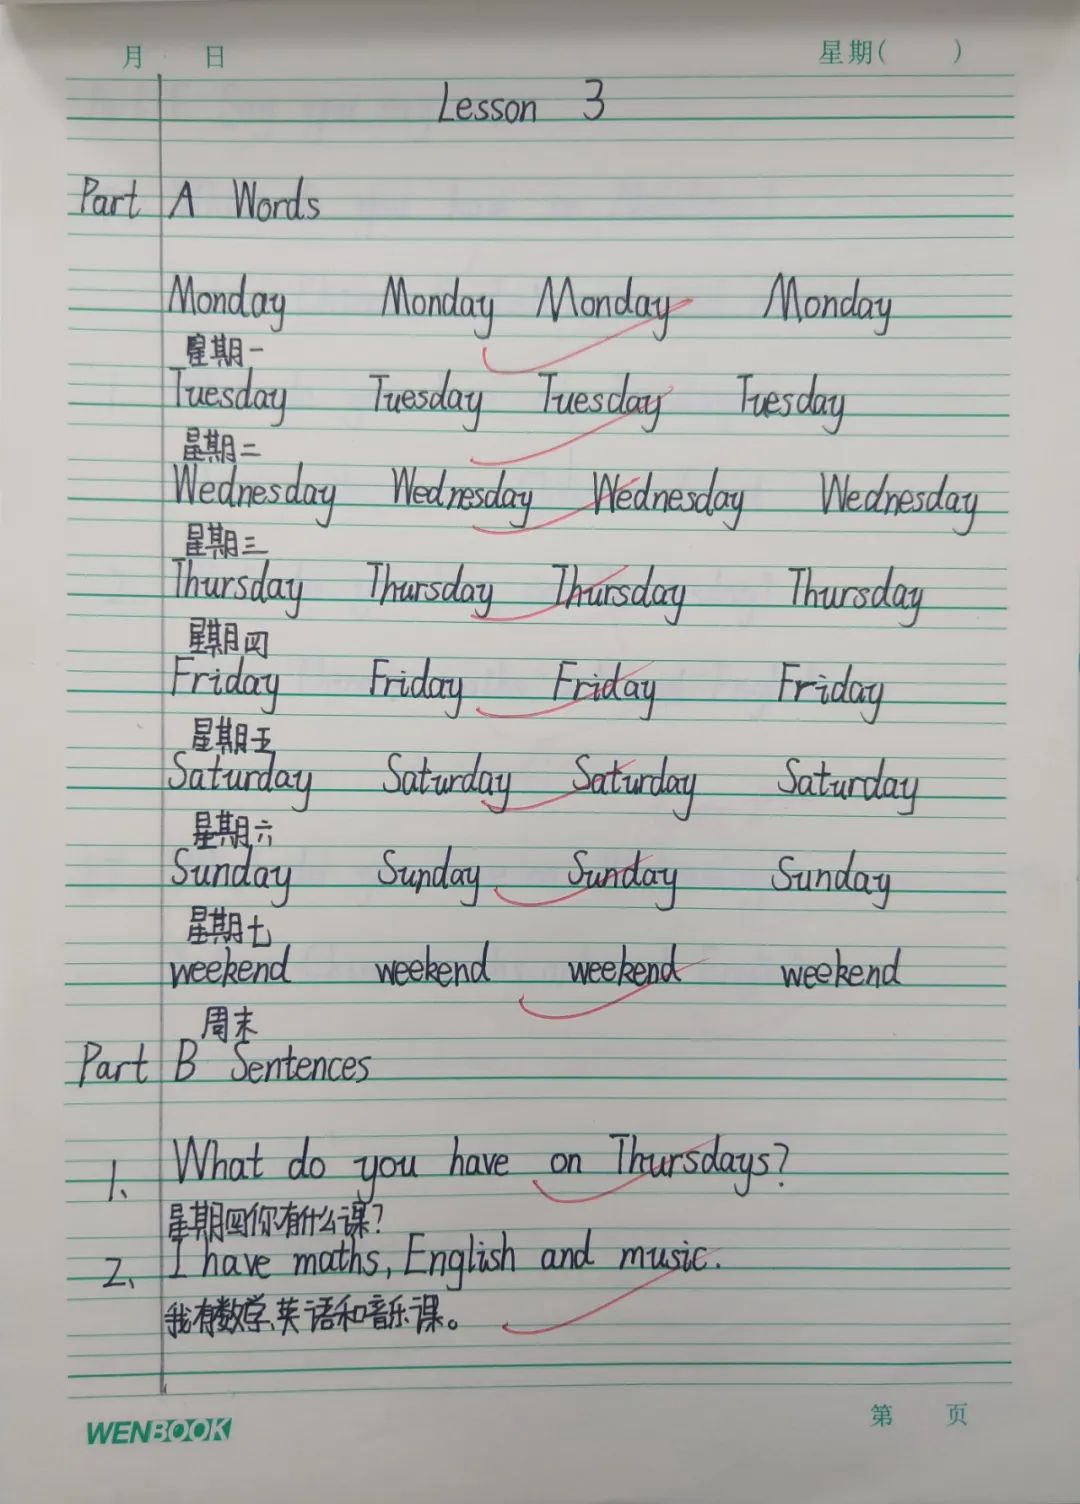 月 日 星期( )
Lesson 3
Part A Words
Monday Monday Monday Monday
星期一
Tuesday Tuesday Tuesday Tuesday
星期二
Wednesday Wednesday Wednesday Wednesday
星期三
Thursday Thursday Thursday Thursday
星期四
Friday Friday Friday Friday
星期五
Saturday Saturday Saturday Saturday
星期六
Sunday Sunday Sunday Sunday
星期七
weekend weekend weekend weekend
周末
Part B Sentences
1、 What do you have on Thursdays?
星期四你有什么课?
2、 I have maths, English and music.
我有数学、英语和音乐课。
WENBOOK 第 页